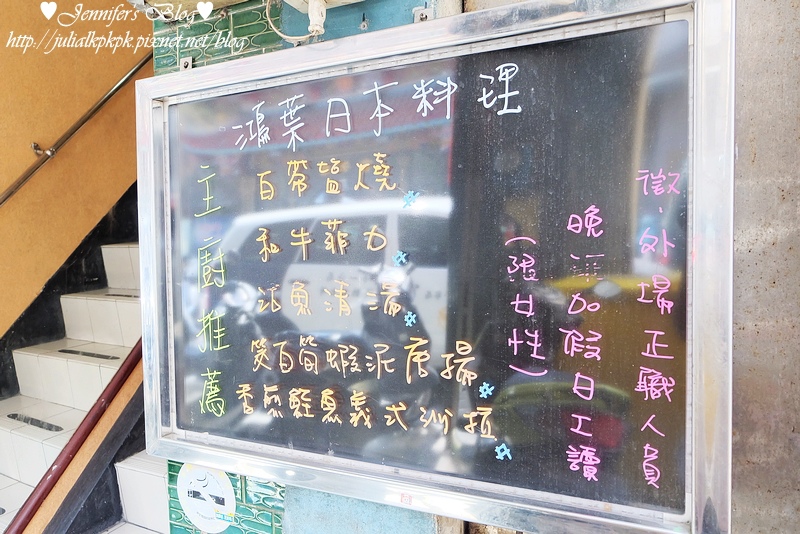 ♥Jennifer's Blog♥
http://julialkpkpk.pixnet.net/blog
鴻葉日本料理
主廚推薦
百帶塩燒
和牛菲力
活魚清湯
筊白筍蝦泥唐揚
香煎鮭魚義式沙拉
徵.外場正職人員
晚班加假日工讀
(限女性)